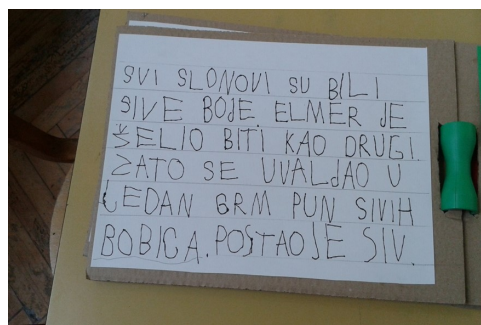 SVI SLONOVI SU BILI
SIVE BOJE. ELMER JE
ŽELIO BITI KAO DRUGI.
ZATO SE UVALJAO U
JEDAN GRM PUN SIVIH
BOBICA. POSTAO JE SIV.